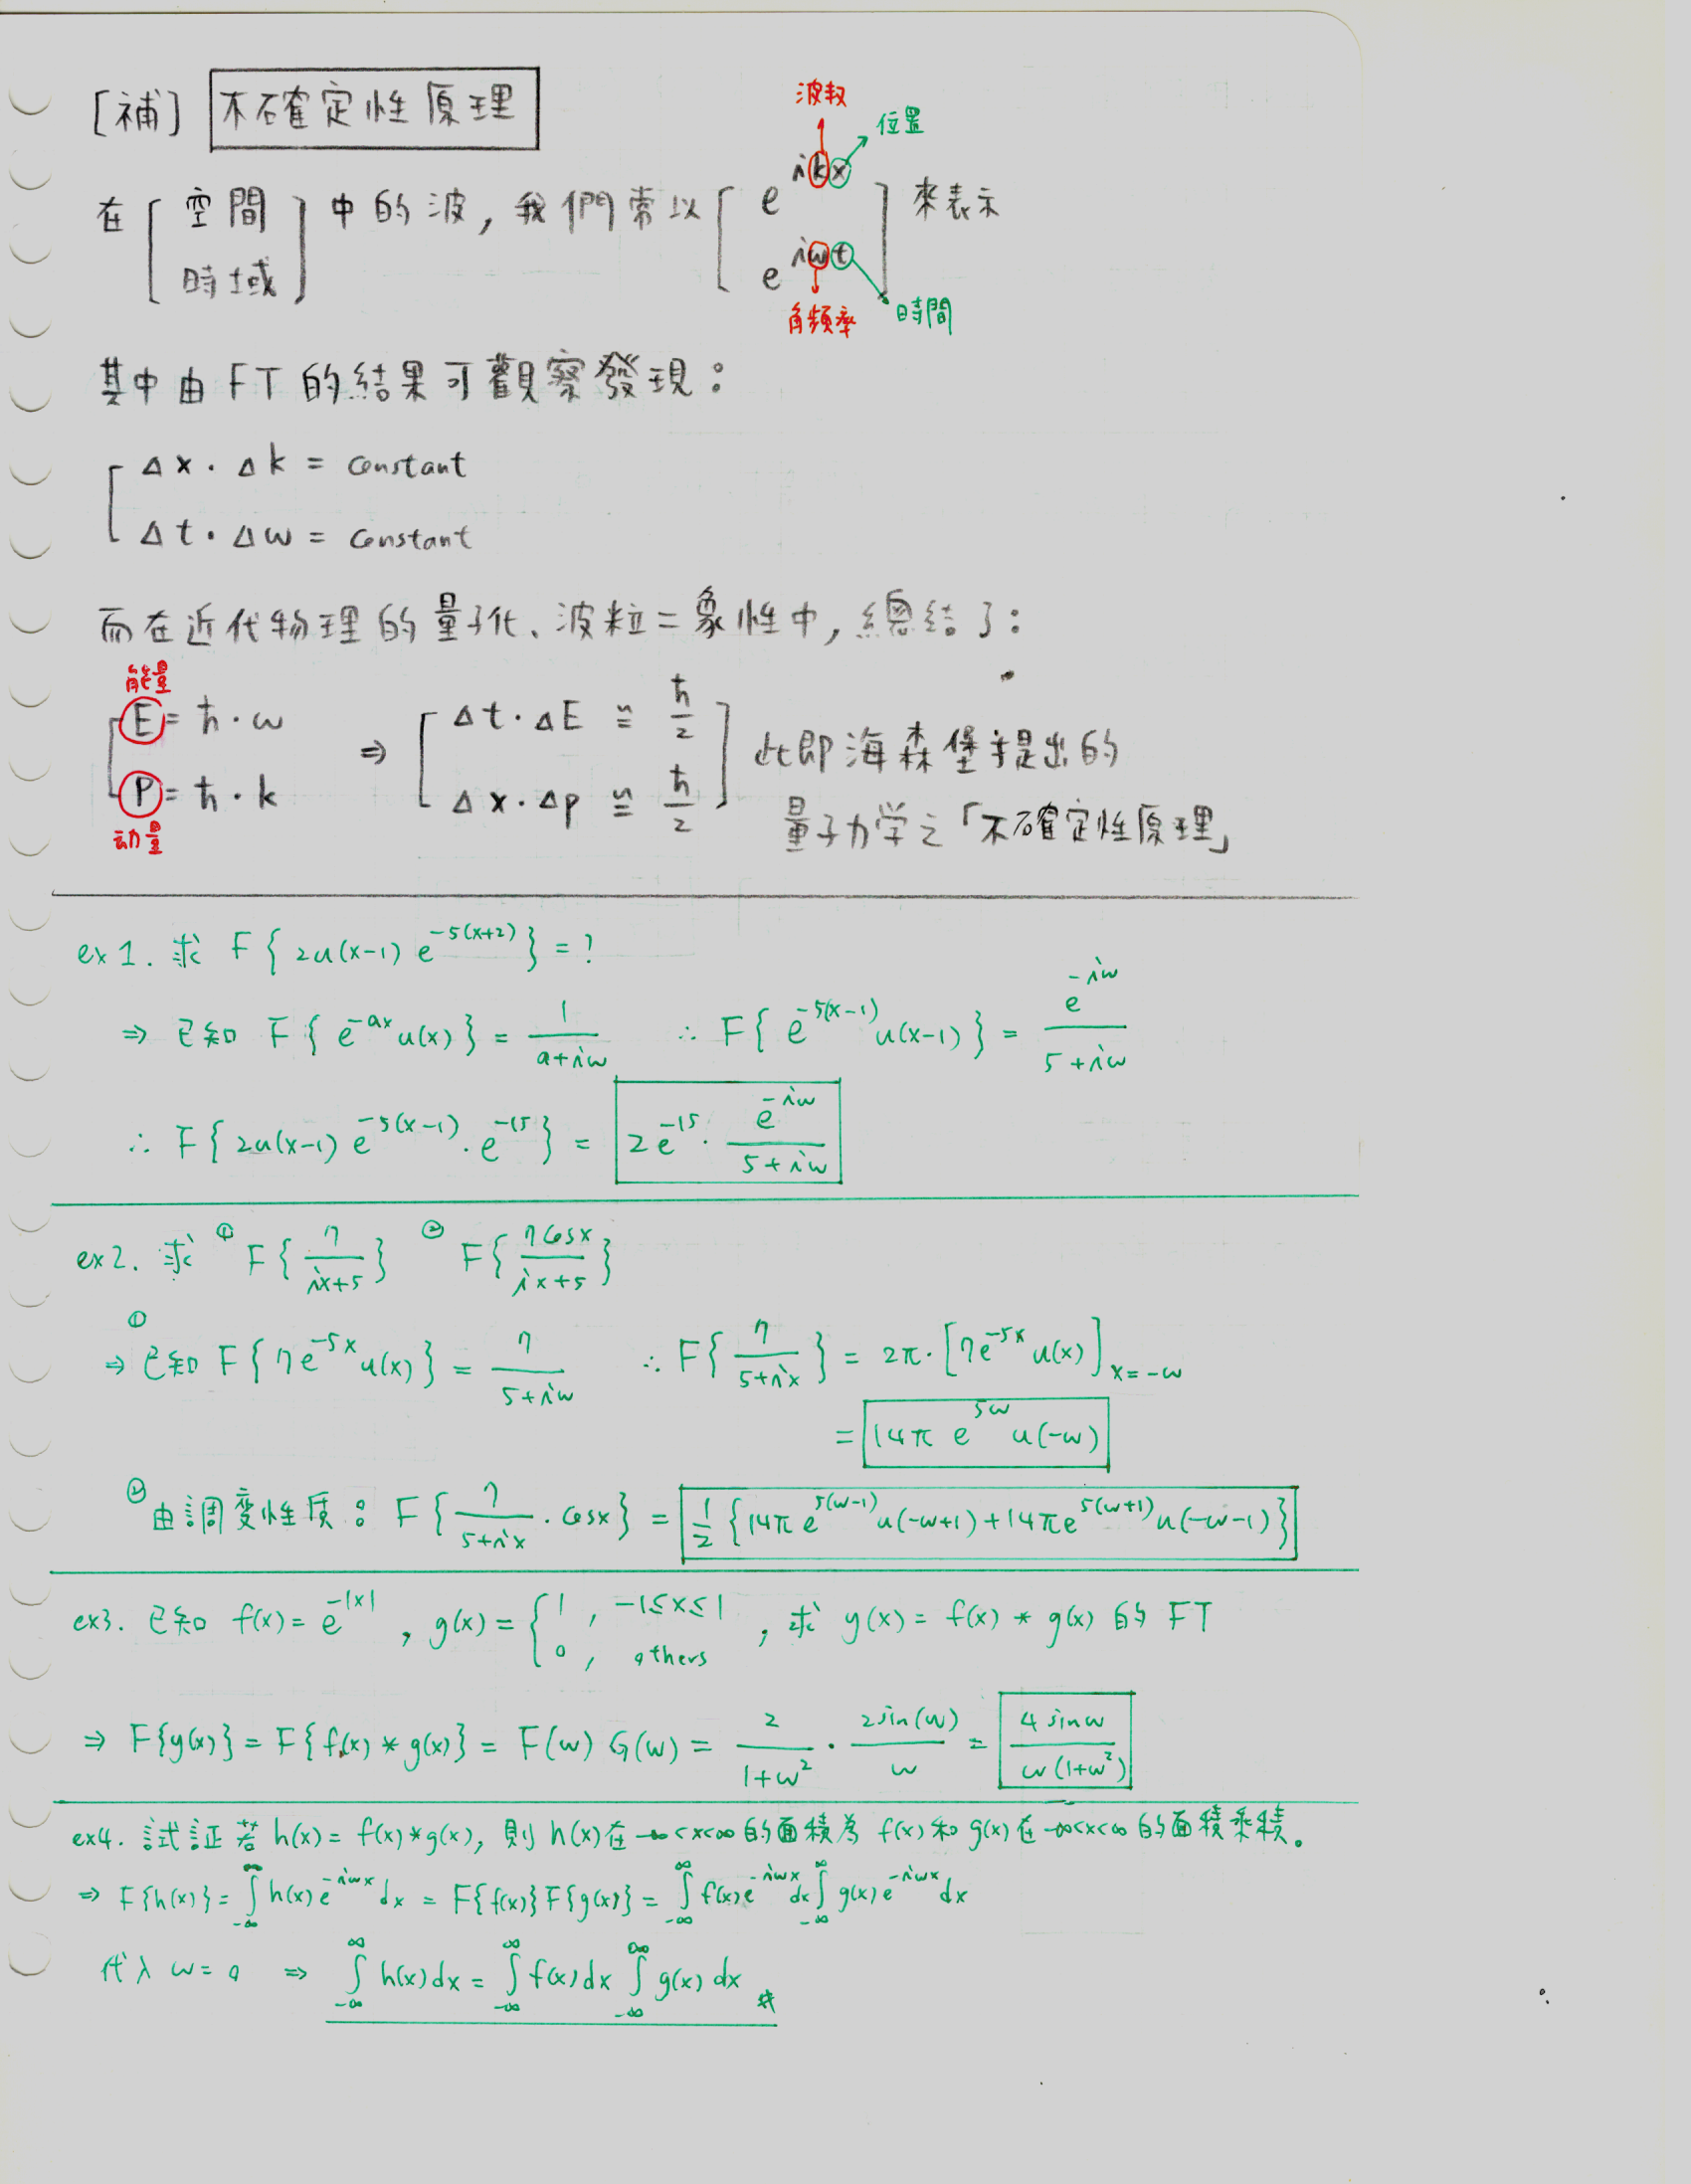 [補] 不確定性原理
波数
位置
在[空間 時域]中的波,我們常以[e^{ikx} e^{iωt}]來表示
角頻率
時間
其中由FT的結果可觀察發現:
Δx·Δk = constant
Δt·Δω = constant
而在近代物理的量子化、波粒二象性中,總結了:
能量
E = ħ·ω ⇒ Δt·ΔE ≅ ħ/2
P = ħ·k Δx·Δp ≅ ħ/2
动量
此即海森堡提出的
量子力学之「不確定性原理」
ex1. 求 F{2u(x-1) e^{-5(x+2)}} = ?
⇒ 已知 F{e^{-ax}u(x)} = 1/(a+iω) ∴ F{e^{-5(x-1)}u(x-1)} = e^{-iω}/(5+iω)
∴ F{2u(x-1) e^{-5(x-1)}·e^{-15}} = 2e^{-15}·e^{-iω}/(5+iω)
ex2. 求 ① F{7/(ix+5)} ② F{7cosx/(ix+5)}
① ⇒ 已知 F{7e^{-5x}u(x)} = 7/(5+iω) ∴ F{7/(5+ix)} = 2π·[7e^{-5x}u(x)]_{x=-ω}
= 14π e^{5ω} u(-ω)
② 由調变性质: F{7/(5+ix)·cosx} = 1/2{14πe^{5(ω-1)}u(-ω+1)+14πe^{5(ω+1)}u(-ω-1)}
ex3. 已知 f(x) = e^{-|x|}, g(x) = {1, -1≤x≤1 0, others, 求 y(x) = f(x) * g(x) 的 FT
⇒ F{y(x)} = F{f(x) * g(x)} = F(ω) G(ω) = 2/(1+ω²) · 2sin(ω)/ω = 4sinω/(ω(1+ω²))
ex4. 試証若 h(x) = f(x)*g(x), 則 h(x)在 -∞<x<∞ 的面積為 f(x)和g(x)在 -∞<x<∞ 的面積乘積。
⇒ F{h(x)} = ∫_{-∞}^{∞} h(x)e^{-iωx}dx = F{f(x)}F{g(x)} = ∫_{-∞}^{∞} f(x)e^{-iωx}dx ∫_{-∞}^{∞} g(x)e^{-iωx}dx
代入 ω=0 ⇒ ∫_{-∞}^{∞} h(x)dx = ∫_{-∞}^{∞} f(x)dx ∫_{-∞}^{∞} g(x)dx #